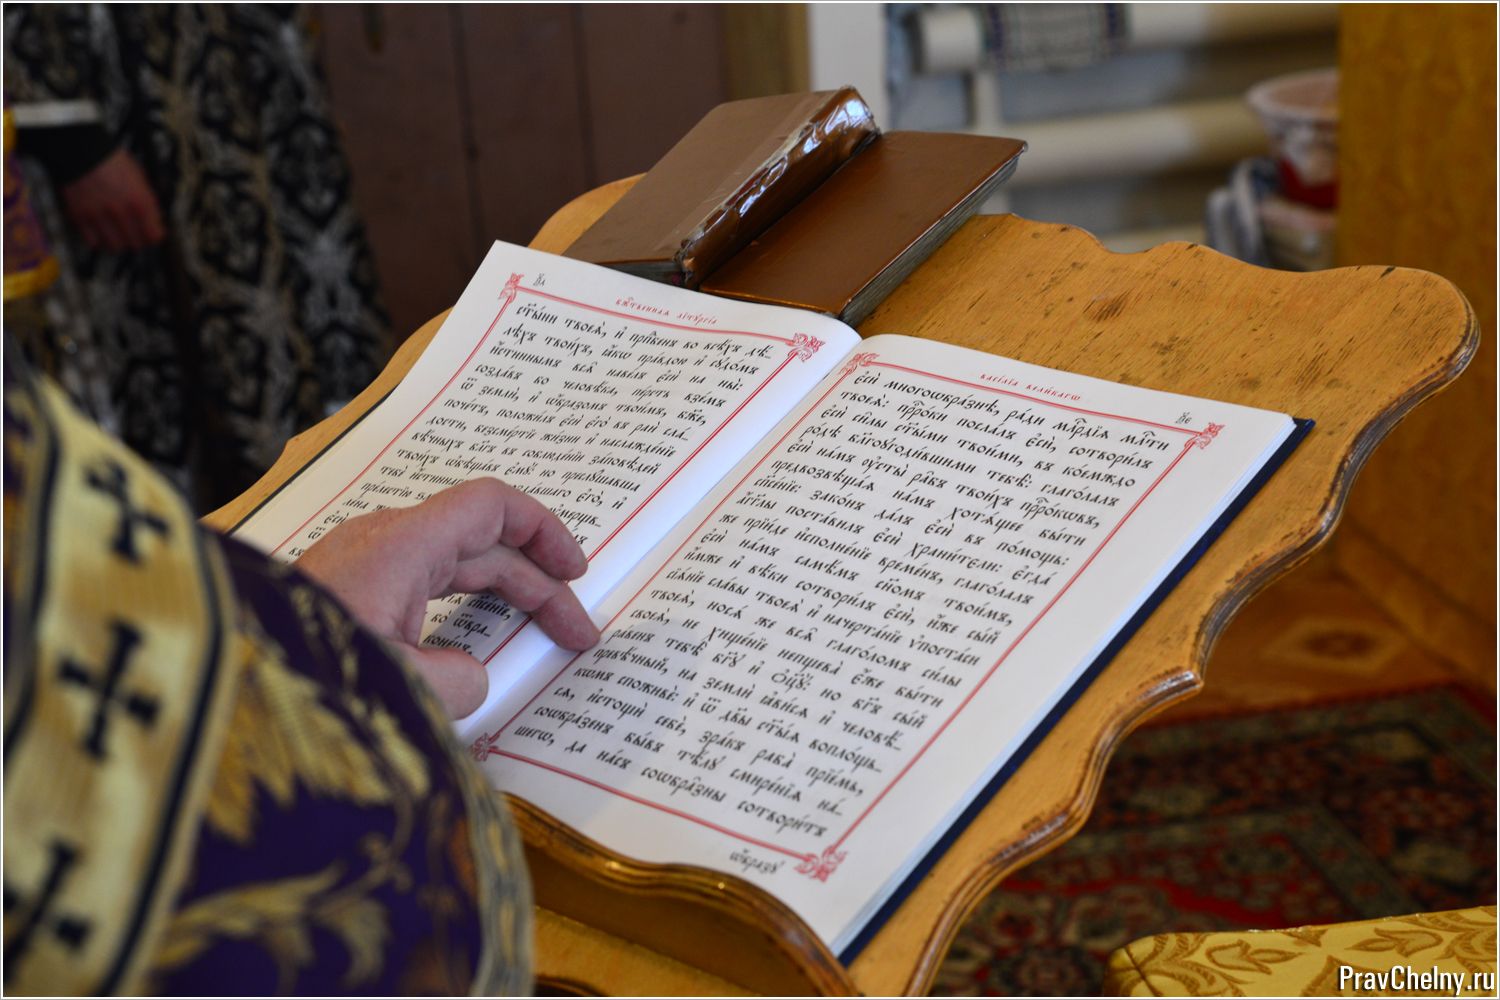 бж҃твеннаѧ лїтꙋргі́а
ст҃ы́ни твоеѧ̀, и҆ приⷭ҇кенъ во всѣ́хъ дѣ-
лѣ́хъ твои́хъ, ꙗ҆́кѡ пра́вдою и҆ сꙋдо́мъ
и҆́стиннымъ всѧ̑ наве́лъ є҆сѝ на ны̀:
созда́въ бо человѣ́ка, пе́рсть взе́мъ
ѿ землѝ, и҆ ѡ҆́бразомъ твои́мъ, бж҃е,
поче́тъ, положи́лъ є҆сѝ є҆го̀ въ раѝ сла́-
дости, безсме́ртїе жи́зни и҆ наслажде́нїе
вѣ́чныхъ бла҃гъ въ соблюде́нїи за́повѣдей
твои́хъ ѡ҆бѣща́въ є҆мꙋ̀: но преслꙋ́шавша
тебѐ и҆́стиннаго созда́вшаго є҆го̀, и҆
пре́лестїю
ко ѡ҆бра-
коне́цъ
васі́лїа вели́кагѡ
є҆сѝ многоѡбра́знѣ, ра́ди млⷭ҇рдїѧ млⷭ҇ти
твоеѧ̀: прⷪ҇ро́ки посла́лъ є҆сѝ, сотвори́лъ
є҆сѝ си̑лы ст҃ы́ми твои́ми, въ ко́емждо
ро́дѣ бл҃гоꙋгоди́вшими тебѣ̀: глаго́лалъ
є҆сѝ на́мъ ᲂу҆сты̀ ра̑бъ твои́хъ прⷪ҇ро́кѡвъ,
предвозвѣща́ѧ на́мъ хотѧ́щее бы́ти
сп҃се́нїе: зако́нъ да́лъ є҆сѝ въ по́мощь:
а҆́гг҃лы поста́вилъ є҆сѝ храни́тели: є҆гда́
же прїи́де и҆сполне́нїе време́нъ, глаго́лалъ
є҆сѝ на́мъ самѣ́мъ сн҃омъ твои́мъ,
и҆́мже и҆ вѣ́ки сотвори́лъ є҆сѝ, и҆́же сы́й
сїѧ́нїе сла́вы твоеѧ̀ и҆ начерта́нїе ѵ҆поста́си
твоеѧ̀, носѧ́ же всѧ̑ глаго́ломъ си́лы
своеѧ̀, не хище́нїе непщева̀ є҆́же бы́ти
ра́венъ тебѣ̀ бг҃ꙋ и҆ ѻ҆ц҃ꙋ̀: но бг҃ъ сы́й
превѣ́чный, на землѝ ꙗ҆ви́сѧ и҆ человѣ́-
кѡмъ споживѐ: и҆ ѿ дв҃ы ст҃ы́ѧ воплощь-
сѧ, и҆стощѝ себѐ, зра́къ раба̀ прїе́мь,
соѡбра́зенъ бы́въ тѣ́лꙋ смире́нїѧ на́-
шегѡ, да на́съ соѡбра̑зны сотвори́тъ
ѡ҆́бразꙋ
PravChelny.ru